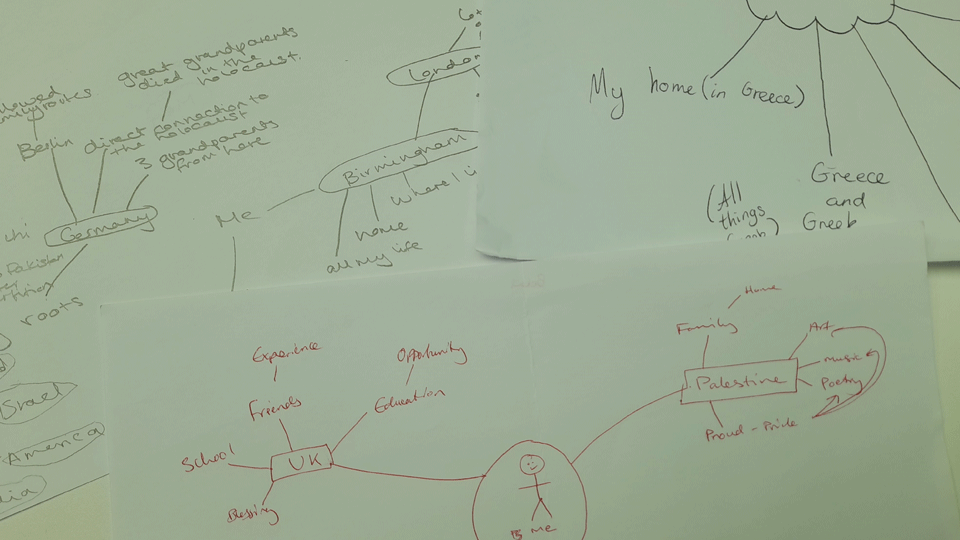 great grandparents
died in the
holocaust.
Berlin
direct connection to
the holocaust
3 grandparents
from here
Germany
roots
Israel
America
Me
London
Birmingham
home
all my life
where I
My home (in Greece)
Greece
and
Greek
(All
things
Experience
Friends
Opportunity
Education
School
UK
Blessing
Me
Home
Family
Palestine
Art
Music
Poetry
Proud - Pride